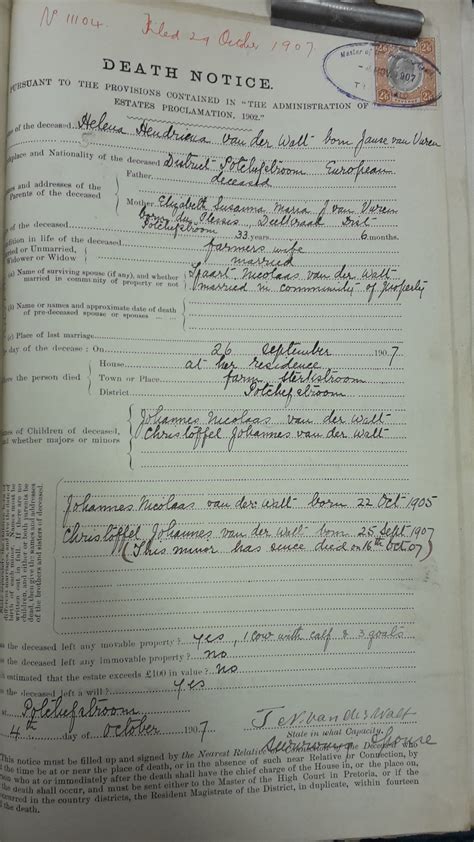 No 11104. Filed 29 October 1907.
2/6 2/6
Master of the
NOV 1907
DEATH NOTICE.
PURSUANT TO THE PROVISIONS CONTAINED IN "THE ADMINISTRATION OF
ESTATES PROCLAMATION, 1902."
of the deceased Helena Hendriena van der Walt born Janse van Vuren
place and Nationality of the deceased District Potchefstroom European
Father deceased
and addresses of the
Parents of the deceased
Mother Elizabeth Susanna Maria J. van Vuren
born du Plessis, Deelkraal Dist
Potchefstroom
of the deceased 33 years 6 months.
in life of the deceased farmers wife
or Unmarried, married
Widower or Widow
(a) Name of surviving spouse (if any), and whether Tjaart Nicolaas van der Walt
married in community of property or not married in community of Property
(b) Name or names and approximate date of death
of pre-deceased spouse or spouses
(c) Place of last marriage
day of the decease: On 26 September 1907
House at her residence
the person died Town or Place farm Sterkstroom
District Potchefstroom
Names of Children of deceased, Johannes Nicolaas van der Walt
and whether majors or minors Christoffel Johannes van der Walt
Johannes Nicolaas van der Walt born 22 Oct 1905
Christoffel Johannes van der Walt born 25 Sept 1907
(This minor has since died on 16th Oct 07)
birth of each minor. Names must be
written out in full. If there are no
children, and either or both parents be
dead, then give the names and addresses
of the brothers and sisters of deceased.
the deceased left any movable property? Yes, 1 cow with calf & 3 goats
the deceased left any immovable property? No
estimated that the estate exceeds £100 in value? No
the deceased left a will? Yes
at Potchefstroom
4th day of October 1907 T N. van der Walt
State in what Capacity.
Surviving Spouse
This notice must be filled up and signed by the Nearest Relative the Deceased who
the time be at or near the place of death, or in the absence of such near Relative or Connection, by
who at or immediately after the death shall have the chief charge of the House in, or the place
the death shall occur, and must be sent either to the Master of the High Court in Pretoria, or if the
occurred in the country districts, the Resident Magistrate of the District, in duplicate, within fourteen
the death.